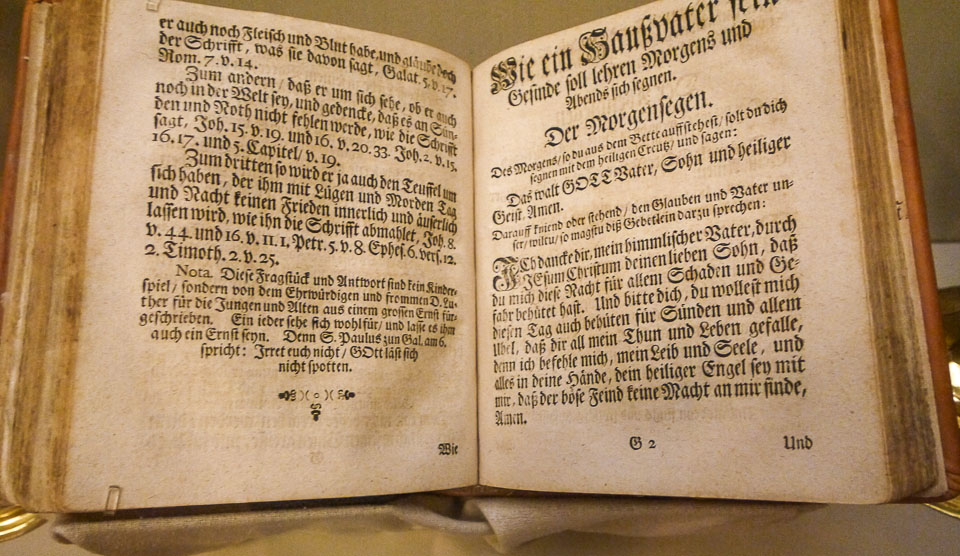 er auch noch Fleisch und Blut habe, und gläube doch
der Schrifft, was sie davon sagt, Galat. 5. v. 17.
Rom. 7. v. 14.
Zum andern / daß er um sich sehe, ob er auch
noch in der Welt sey, und gedencke, daß es an Sün-
den und Noth nicht fehlen werde, wie die Schrifft
sagt, Joh. 15. v. 19. und 16. v. 20. 33. Joh. 2. v. 15.
16. 17. und 5. Capitel / v. 19.
Zum dritten so wird er ja auch den Teuffel um
sich haben, der ihm mit Lügen und Morden Tag
und Nacht keinen Frieden innerlich und äuserlich
lassen wird, wie ihn die Schrifft abmahlet, Joh. 8.
v. 44. und 16. v. 11. 1. Petr. 5. v. 8. Ephes. 6. vers. 12.
2. Timoth. 2. v. 25.
Nota. Diese Fragstück und Antwort sind kein Kinder-
spiel / sondern von dem Ehrwürdigen und frommen D. Lu-
ther für die Jungen und Alten aus einem grossen Ernst für-
geschrieben. Ein ieder sehe sich wohl für / und lasse es ihm
auch ein Ernst seyn. Denn S. Paulus zun Gal. am 6.
spricht: Irret euch nicht / GOtt läst sich
nicht spotten.
Wie
Wie ein Haußvater sein
Gesinde soll lehren Morgens und
Abends sich segnen.
Der Morgensegen.
Des Morgens / so du aus dem Bette auffstehest / solt du dich
segnen mit dem heiligen Creutz / und sagen:
Das walt GOTT Vater, Sohn und heiliger
Geist. Amen.
Darauff kniend oder stehend / den Glauben und Vater un-
ser / wiltu / so magstu diß Gebetlein darzu sprechen:
ICh dancke dir, mein himmlischer Vater, durch
JEsum Christum deinen lieben Sohn, daß
du mich diese Nacht für allem Schaden und Ge-
fahr behütet hast. Und bitte dich, du wollest mich
diesen Tag auch behüten für Sünden und allem
Ubel, daß dir all mein Thun und Leben gefalle,
denn ich befehle mich, mein Leib und Seele, und
alles in deine Hände, dein heiliger Engel sey mit
mir, daß der böse Feind keine Macht an mir finde,
Amen.
G 2
Und